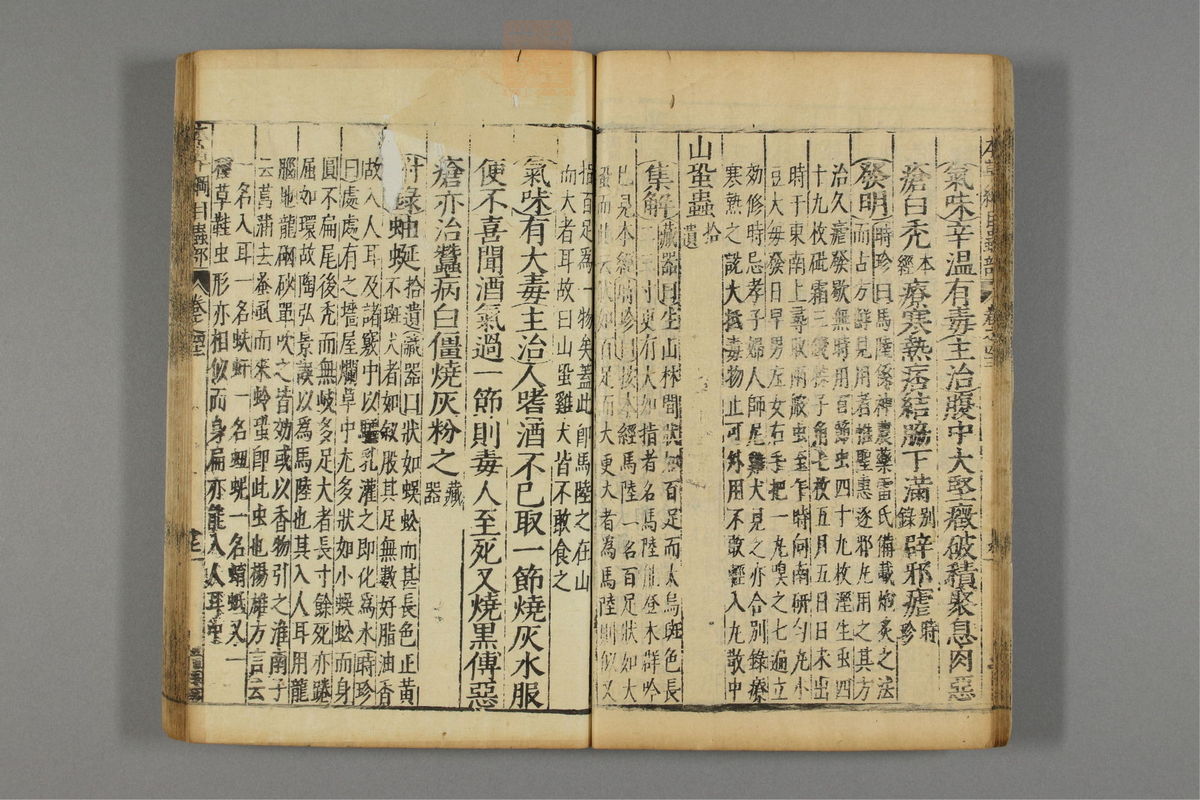 氣味辛溫有毒主治腹中大堅癥破積聚息肉惡
瘡白禿本經療寒熱痞結脇下滿別錄辟邪瘧時珍
發明時珍曰馬陸係神農藥雷氏備載炮炙之法
而古方鮮見用者惟聖惠逐邪丸用之其方
治久瘧發歇無時用百節虫四十九枚溼生虫四
十九枚砒霜三錢粽子角七枚五月五日日未出
時于東南上尋取兩般虫至午時向南研勻丸小
豆大每發日早男左女右手把一丸嗅之七遍立
効修時忌孝子婦人師尼雞犬見之亦合別錄療
寒熱之說大抵毒物止可外用不敢輕入丸散中
山蛩蟲拾遺
集解藏器曰生山林間狀如百足而大烏斑色長
二三寸更有大如指者名馬陸能登木群吟
已見本經時珍曰按本經馬陸一名百足狀如大
蛩而此云狀如百足而大更大者為馬陸則似又
指百足為一物矣蓋此即馬陸之在山
而大者耳故曰山蛩雞犬皆不敢食之
氣味有大毒主治人嗜酒不已取一節燒灰水服
便不喜聞酒氣過一節則毒人至死又燒黑傅惡
瘡亦治蠶病白僵燒灰粉之藏器
附錄蚰蜒拾遺藏器曰狀如蜈蚣而甚長色正黃
不斑大者如釵股其足無數好脂油香
故入人耳及諸竅中以驢乳灌之即化為水時珍
曰處處有之墻屋爛草中尤多狀如小蜈蚣而身
圓不扁尾後禿而無岐多足大者長寸餘死亦踡
屈如環故陶弘景誤以為馬陸也其入人耳用龍
腦地龍硇砂單吹之皆効或以香物引之淮南子
云菖蒲去蚤虱而來蛉蛩即此虫也揚雄方言云
一名入耳一名蚨虶一名蛆蛝一名蛝蚭又一
種草鞋虫形亦相似而身扁亦能入人耳中